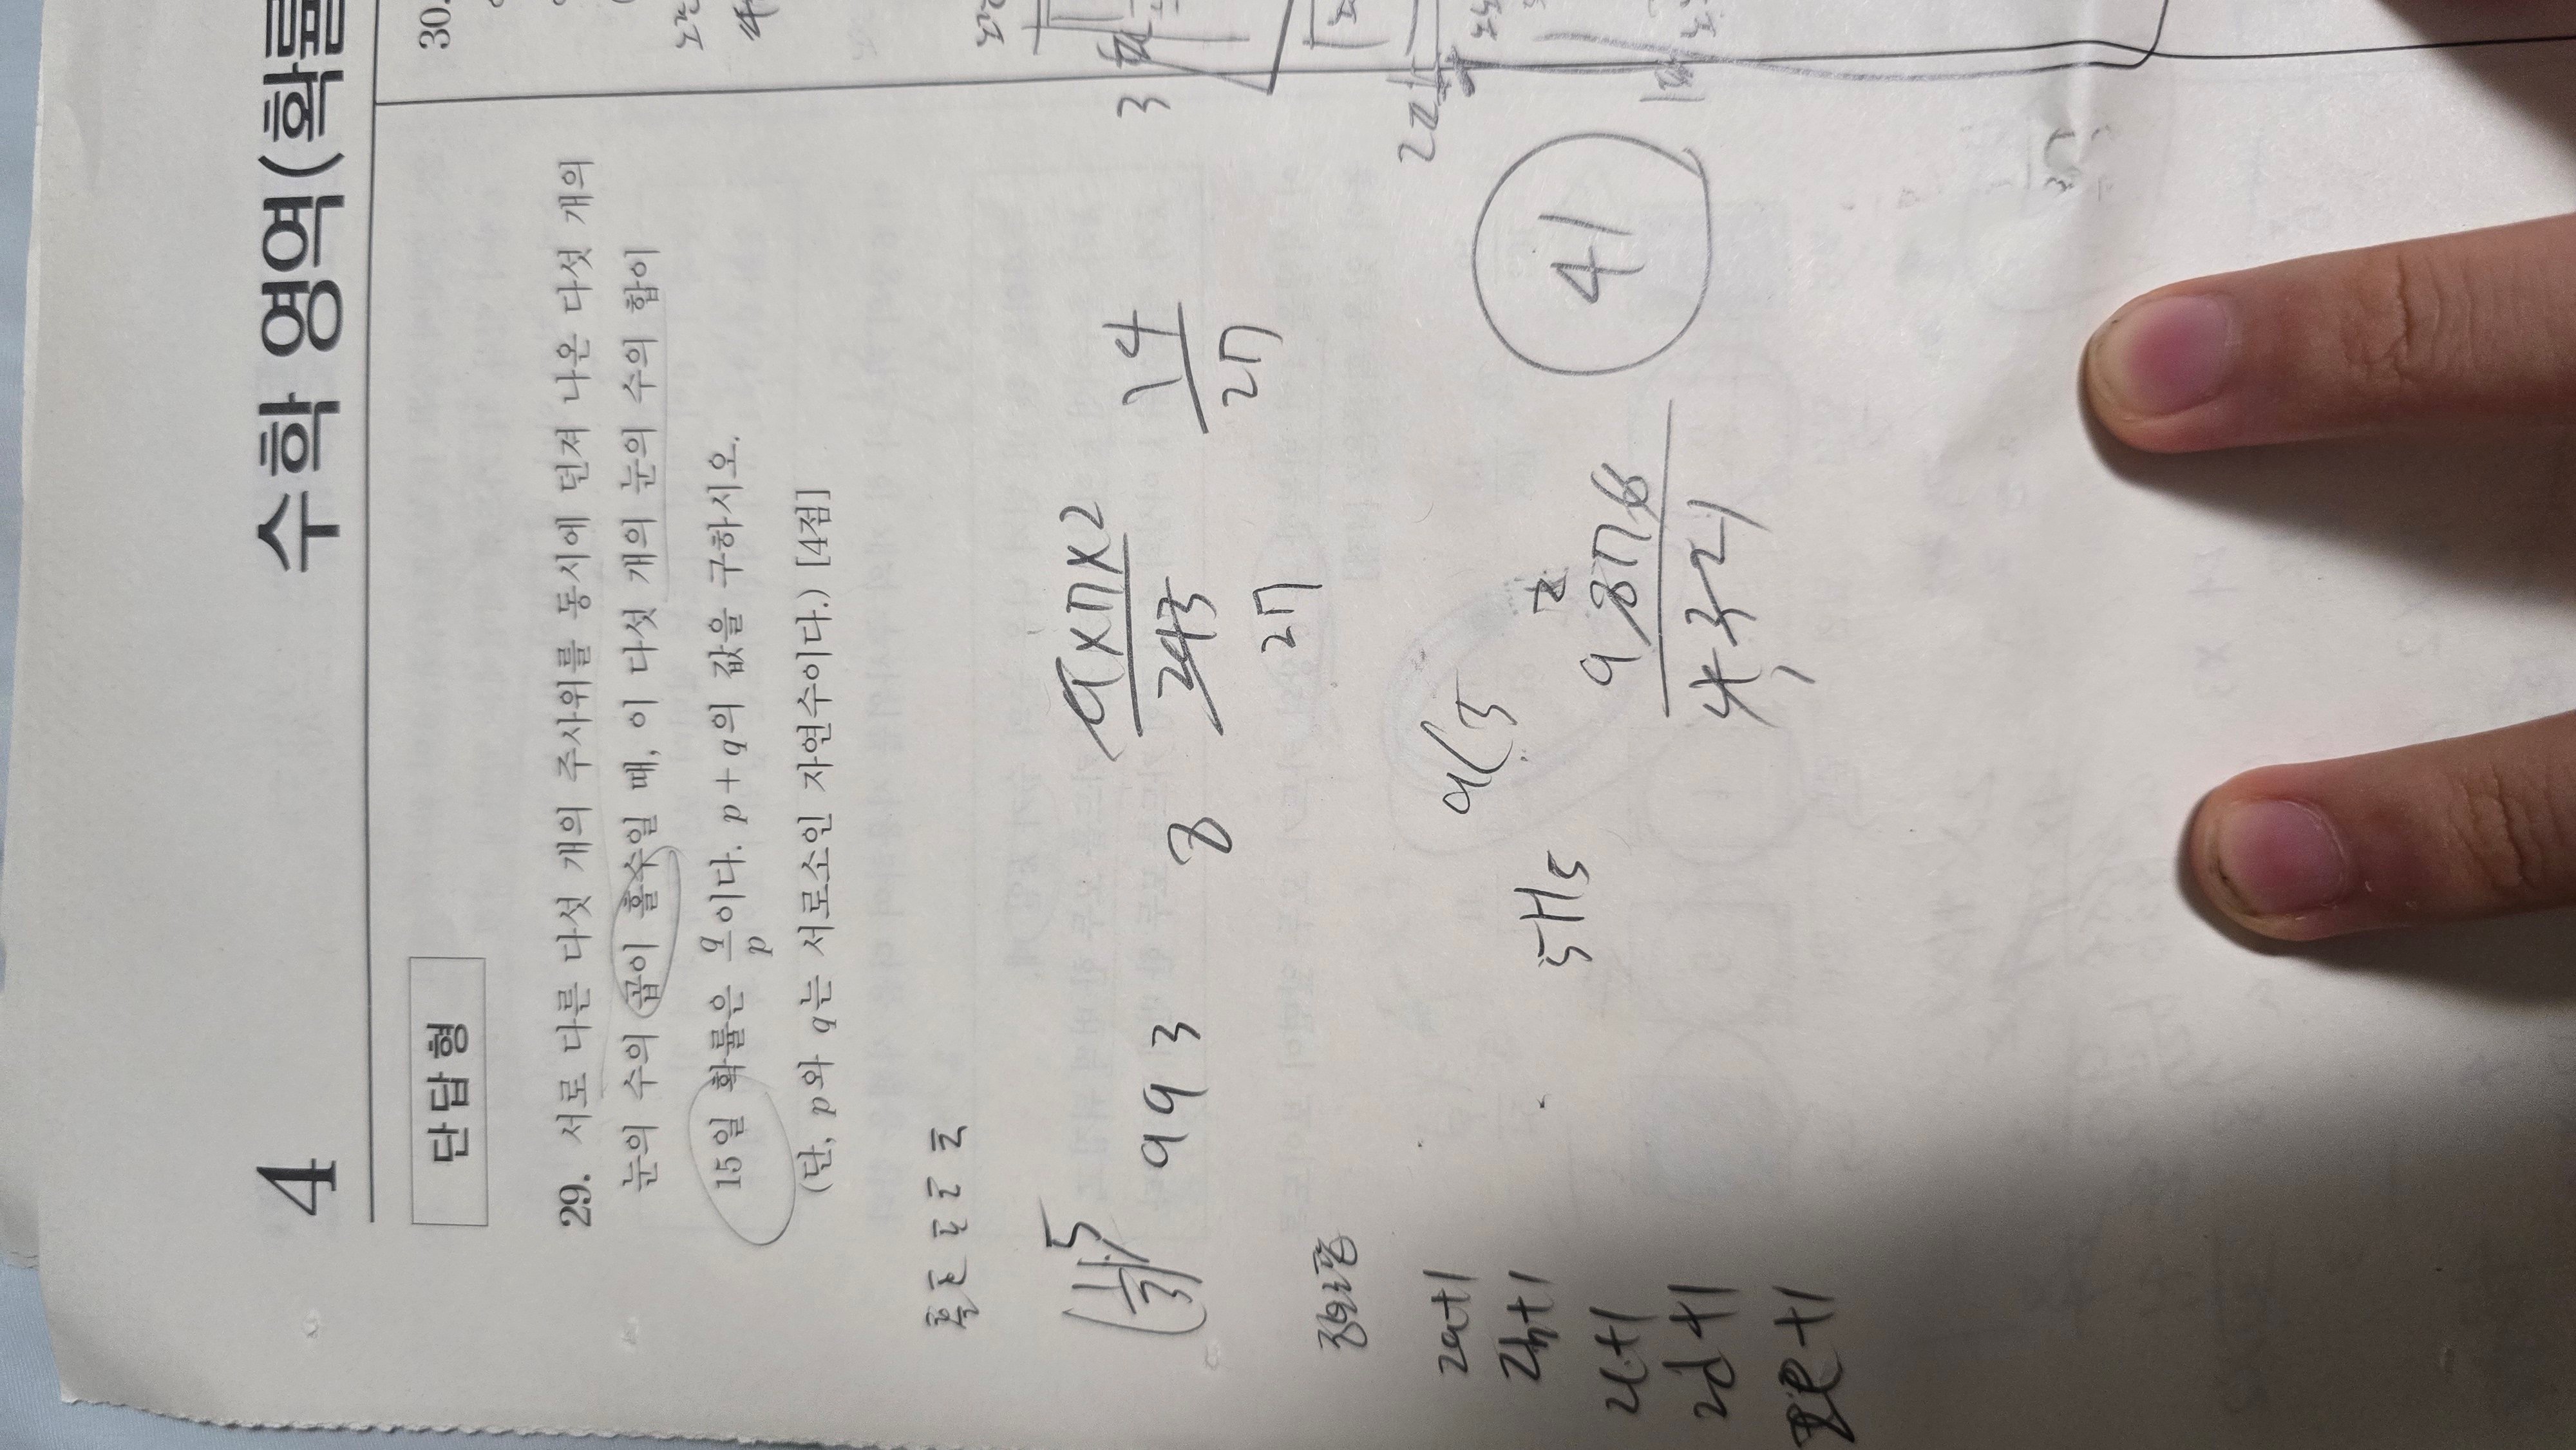 4
수학 영역(확률
단답형
29. 서로 다른 다섯 개의 주사위를 동시에 던져 나온 다섯 개의
눈의 수의 곱이 홀수일 때, 이 다섯 개의 눈의 수의 합이
15일 확률은 q/p이다. p+q의 값을 구하시오.
(단, p와 q는 서로소인 자연수이다.) [4점]
(1/3)^5
9 9 3
8
9×7×2
243
27
14
27
2a+1
2b+1
2c+1
2d+1
2e+1
5H5
9C5
2
9 8 7 6
4 3 2 1
41
30.
3